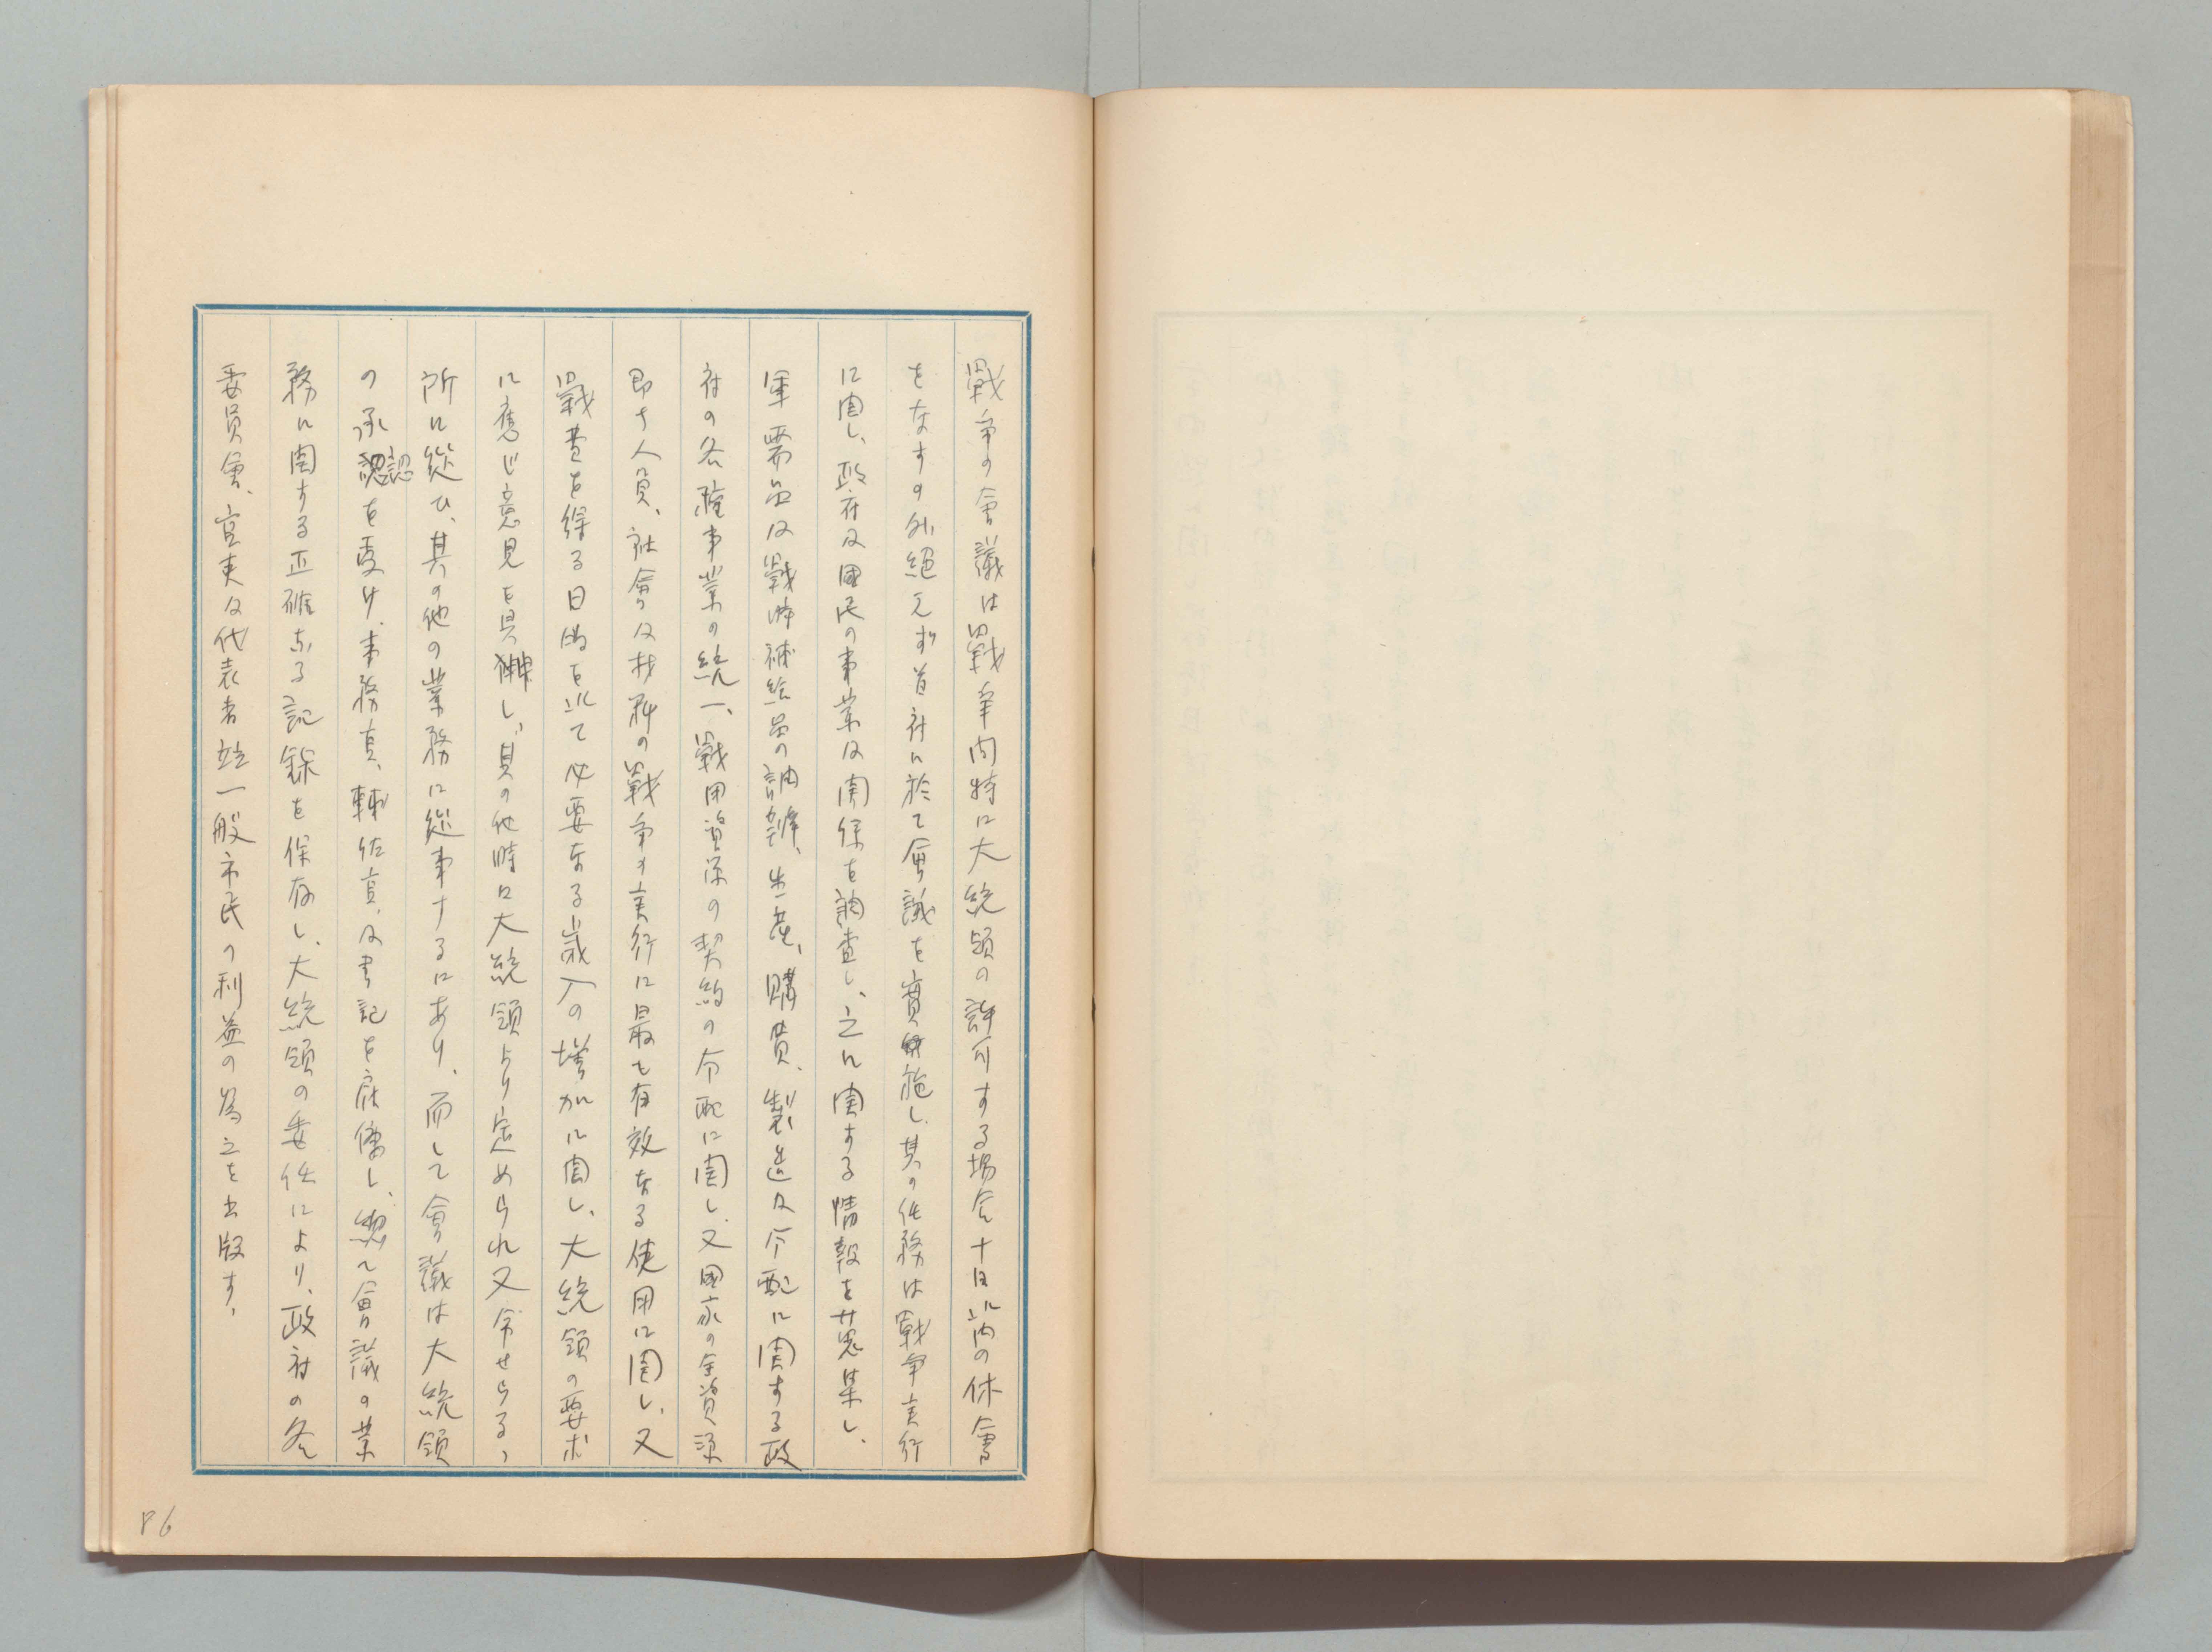 戰争の會議は戰争中特に大統領の許可する場合十日以内の休會
をなすの外絶えず首府に於て會議を實施し、其の任務は戰争実行
に関し、政府及國民の事業及関係を調査し、之に関する情報を蒐集し、
軍需品及戰時補給品の調辨、生産、購買、製造及分配に関する政
府の各種事業の統一、戰用資源の契約の分配に関し、又國家の全資源
即ち人員、社會及材料の戰争の実行に最も有效なる使用に関し、又
戰費を得る目的を以て必要なる歳入の増加に関し、大統領の要求
に應じ意見を具申し、其の他時に大統領より定められ又令せらるゝ
所に從ひ、其の他の業務に從事するにあり、而して會議は大統領
の承認を受け、事務員、輔佐員、及書記を雇傭し、總て會議の業
務に関する正確なる記録を保存し、大統領の委任により、政府の各
委員會、官吏及代表者並一般市民の利益の為之を出版す、
P6